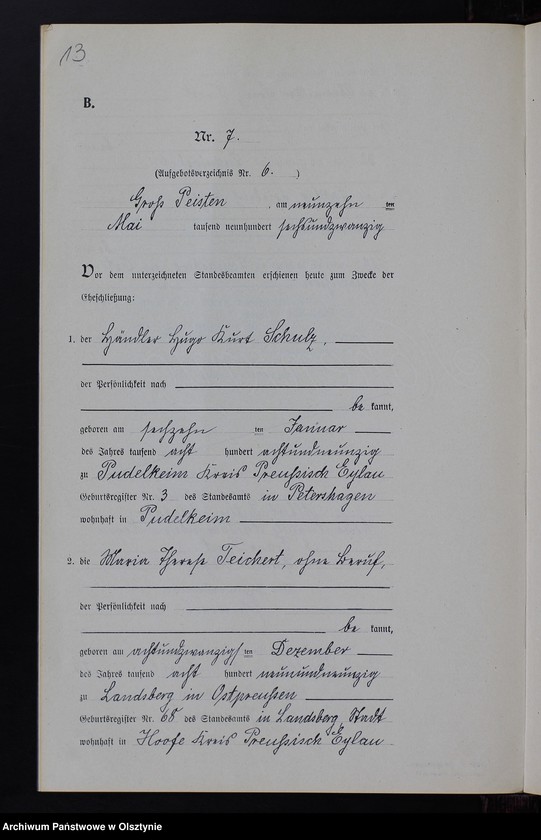 13
B.
Nr. 7.
(Aufgebotsverzeichnis Nr. 6. )
Groß Peisten , am neunzehn ten
Mai tausend neunhundert sechsundzwanzig
Vor dem unterzeichneten Standesbeamten erschienen heute zum Zwecke der
Eheschließung:
1. der Händler Hugo Kurt Schulz,
der Persönlichkeit nach
be kannt,
geboren am sechzehn ten Januar
des Jahres tausend acht hundert achtundneunzig
zu Pudelkeim Kreis Preußisch Eylau
Geburtsregister Nr. 3 des Standesamts in Petershagen
wohnhaft in Pudelkeim
2. die Maria Therese Teichert, ohne Beruf,
der Persönlichkeit nach
be kannt,
geboren am achtundzwanzigs ten Dezember
des Jahres tausend acht hundert neunundneunzig
zu Landsberg in Ostpreussen
Geburtsregister Nr. 68 des Standesamts in Landsberg Stadt
wohnhaft in Hoofe Kreis Preußisch Eylau
Archiwum Państwowe w Olsztynie